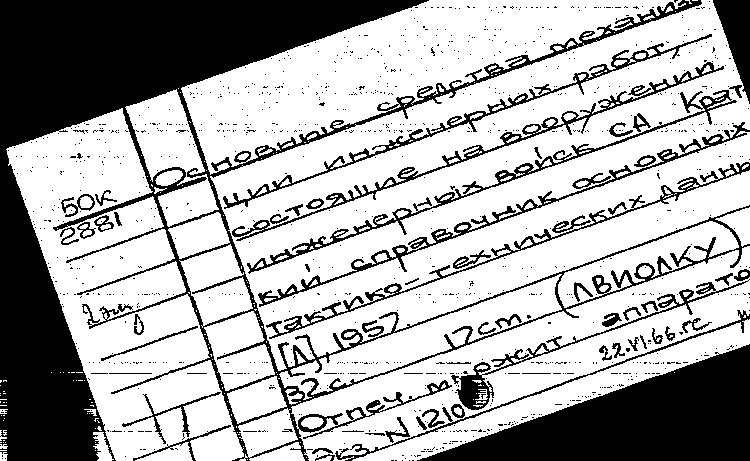 50К
2881
2 экз
Основные средства механиза
ции инженерных работ,
состоящие на вооружении
инженерных войск СА. Крат
кий справочник основных
тактико-технических данны
[Л], 1957.
32 с. 17 см. (ЛВИОЛКУ)
Отпеч. множит. аппарато
Экз. N 1210 22.VI.66.гс